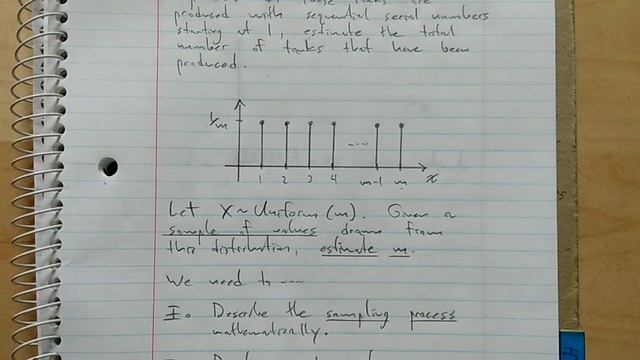 these tanks are
produced with sequential serial numbers
starting at 1, estimate the total
number of tanks that have been
produced.
1/m
1 2 3 4 m-1 m x
Let X ~ Uniform (m). Given a
sample of values drawn from
this distribution, estimate m.
We need to ----
I. Describe the sampling process
mathematically.